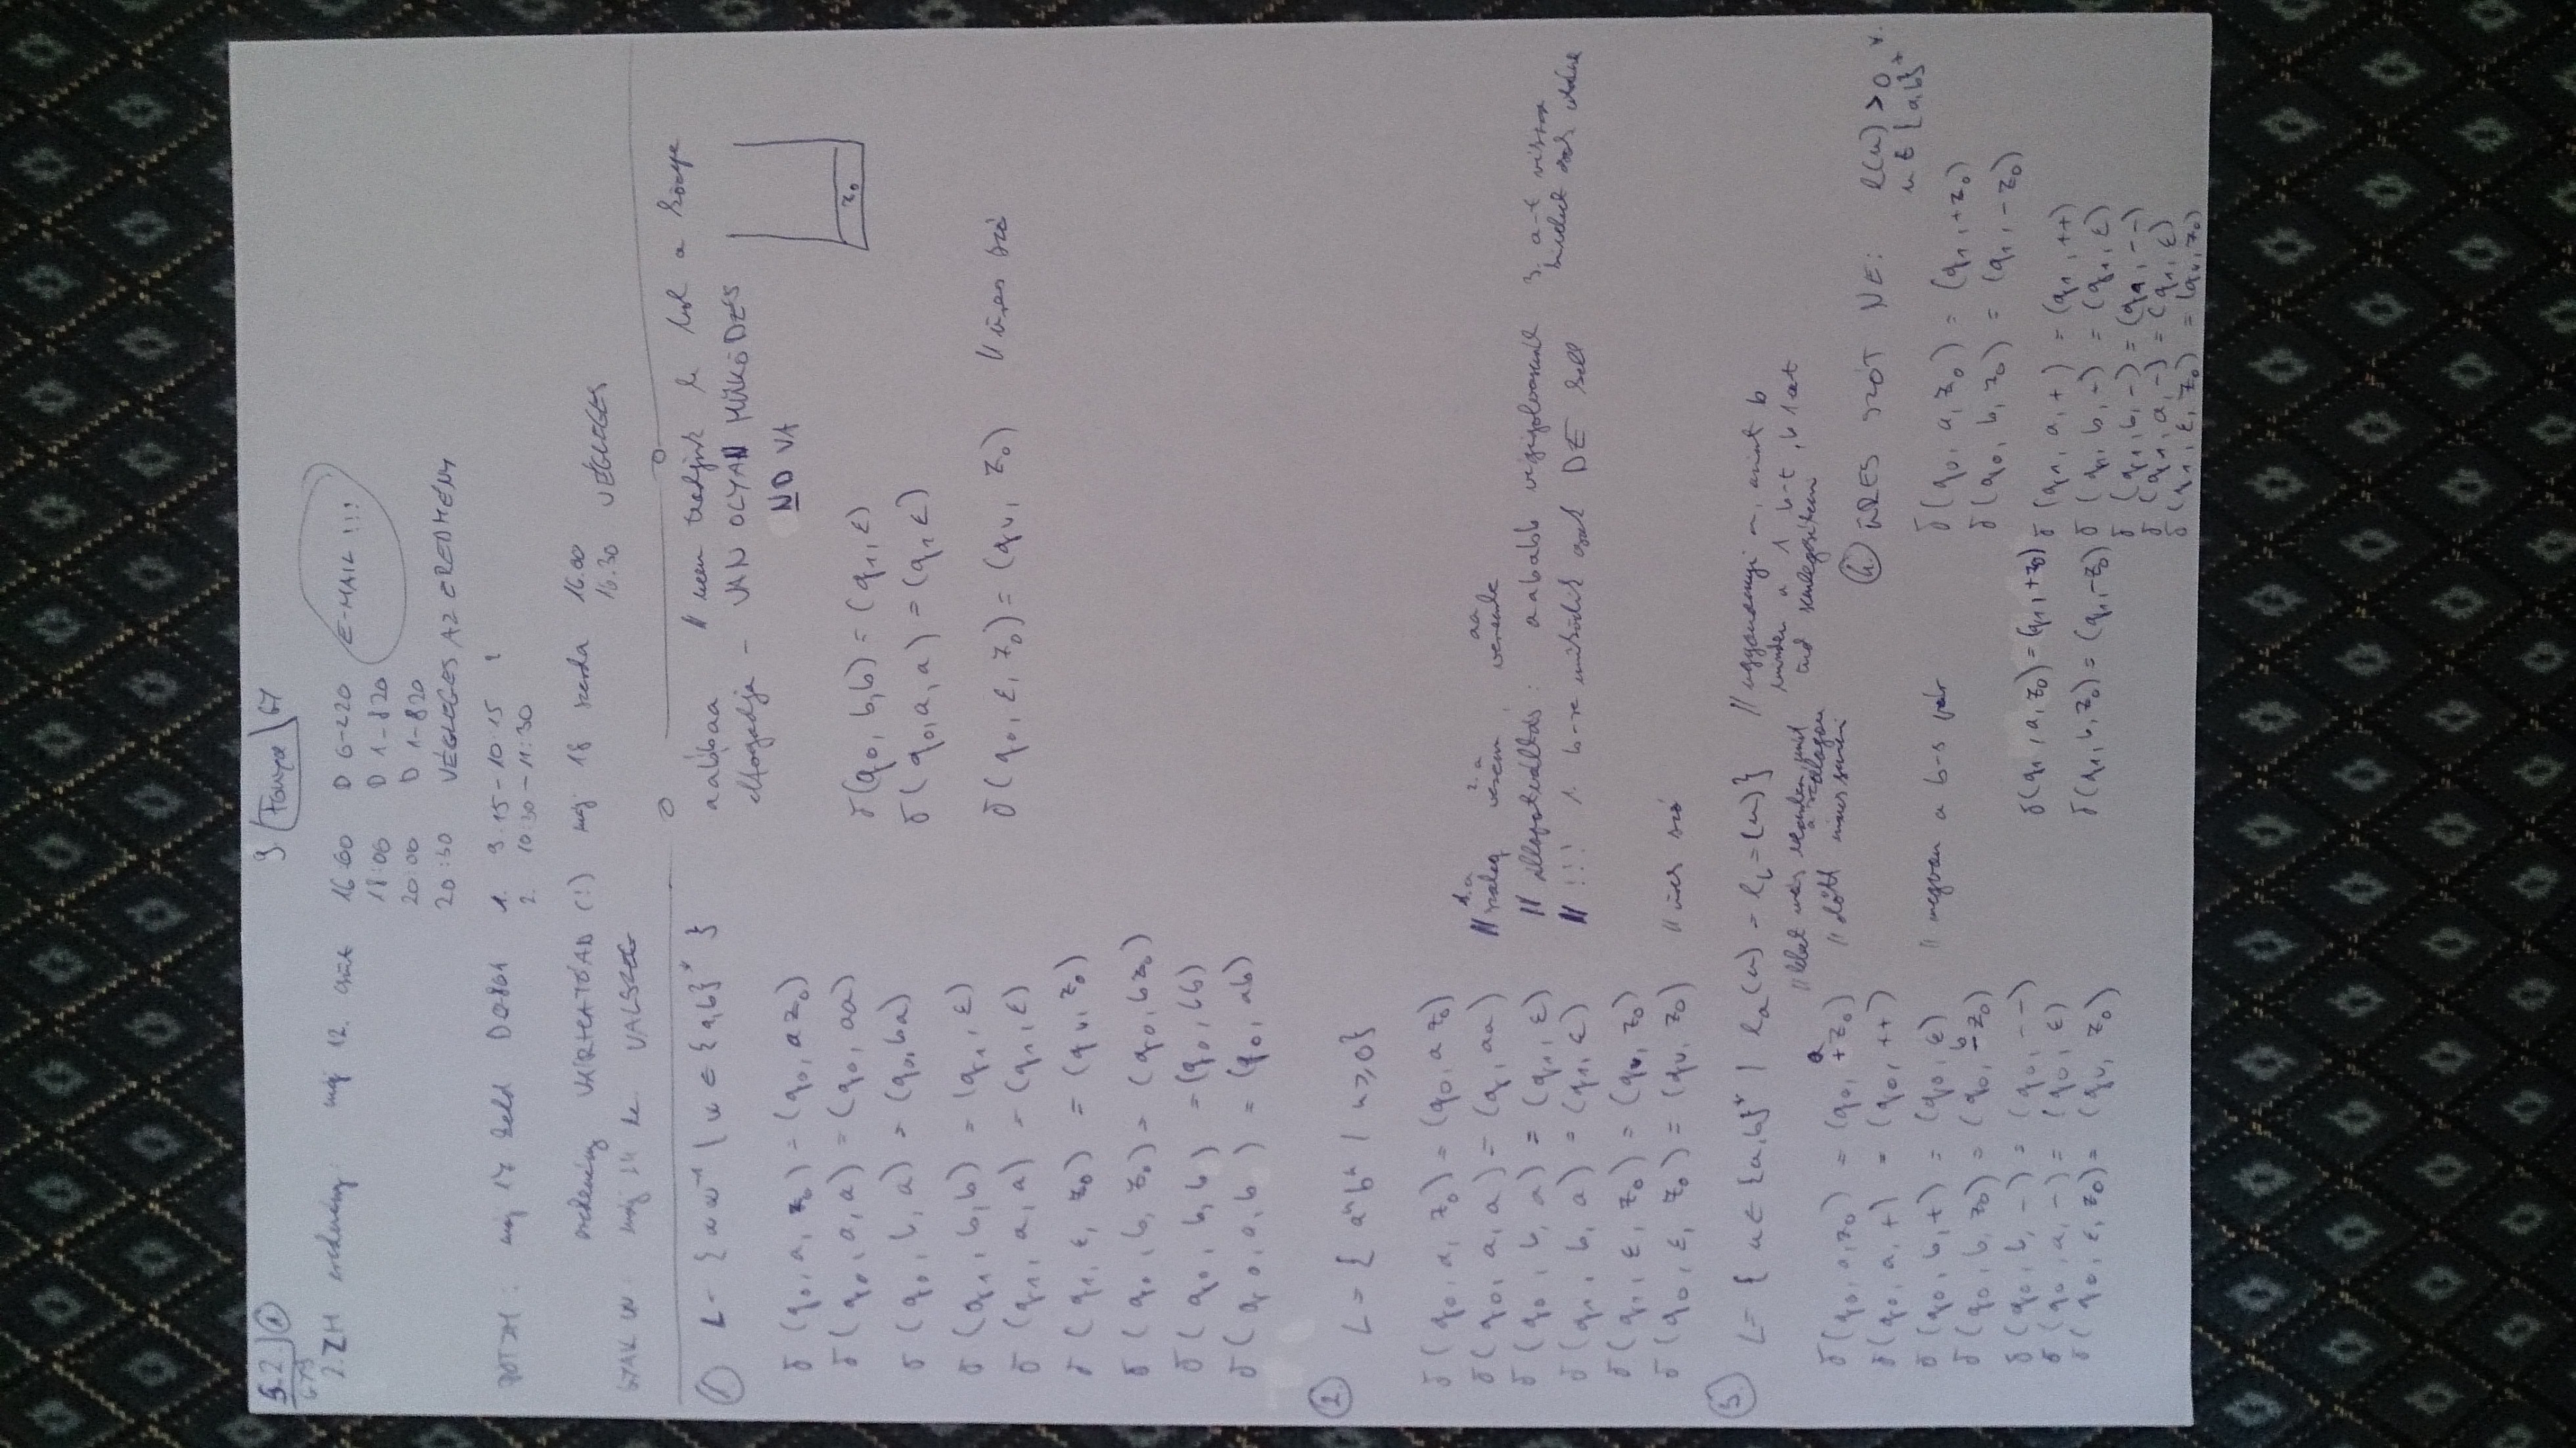 5.2 ①
9. Fonya 67
2. ZH eredmény: máj 12. csüt 16:00 D 6-220 E-MAIL !!!
18:00 D 1-820
20:00 D 1-820
20:30 VÉGLEGES AZ EREDMÉNY
PÓTZH: máj 17 kedd D0-804 1. 9:15-10:15 ?
2. 10:30-11:30
eredmény VÁRHATÓAN (!) máj 18 szerda 16.00
16.30 VÉGLEGES
① L = { w w⁻¹ | w ∈ {a,b}* }
aabbaa // nem tudjuk le hol a közepe
elfogadja - VAN OLYAN MŰKÖDÉS
ND VA
z₀
δ(q₀, a, z₀) = (q₀, a z₀)
δ(q₀, a, a) = (q₀, aa)
δ(q₀, b, a) = (q₀, ba)
δ(q₁, b, b) = (q₁, ε)
δ(q₁, a, a) = (q₁, ε)
δ(q₁, ε, z₀) = (qᵥ, z₀)
δ(q₀, b, z₀) = (q₀, b z₀)
δ(q₀, b, b) = (q₀, bb)
δ(q₀, a, b) = (q₀, ab)
δ(q₀, b, b) = (q₁, ε)
δ(q₀, a, a) = (q₁ ε)
δ(q₀, ε, z₀) = (qᵥ, z₀) // üres szó
② L = { aⁿbⁿ | n ≥ 0 }
δ(q₀, a, z₀) = (q₀, a z₀)
1. a 2. a aa
δ(q₀, a, a) = (q, aa) // szalag verem, verembe
δ(q₀, b, a) = (q₁, ε) // állapotváltás: aababb végigolvasásnál 3. a-t vissza
δ(q₁, b, a) = (q₁, ε) // !!! 1. b-re működik csak DE kell
δ(q₁, ε, z₀) = (qᵥ, z₀)
δ(q₀, ε, z₀) = (qᵥ, z₀) // üres szó
③ L = { u ∈ {a,b}* | ℓa(u) = ℓb = (u) } // ugyanannyi a, mint b
minden a 1 b-t, b 1 a-t
tud semlegesíteni
// lehet más veremben, mint
a szalagon
a
δ(q₀, a, z₀) = (q₀, + z₀)
δ(q₀, a, +) = (q₀, ++)
δ(q₀, b, +) = (q₀, ε) // megvan a b-s pár
b
δ(q₀, b, z₀) = (q₀, - z₀)
δ(q₀, b, -) = (q₀, --)
δ(q₀, a, -) = (q₀, ε)
δ(q₀, ε, z₀) = (qᵥ, z₀)
④ ÜRES SZÓT NE: ℓ(u) > 0 v.
u ∈ {a,b}⁺
δ(q₀, a, z₀) = (q₁, + z₀)
δ(q₀, b, z₀) = (q₁, - z₀)
δ(q₁, a, z₀) = (q₁, + z₀)
δ(q₁, b, z₀) = (q₁, - z₀)
δ(q₁, a, +) = (q₁, ++)
δ(q₁, b, -) = (q₁, ε)
δ(q₁, b, -) = (q₁, --)
δ(q₁, a, -) = (q₁, ε)
δ(q₁, ε, z₀) = (qᵥ, z₀)